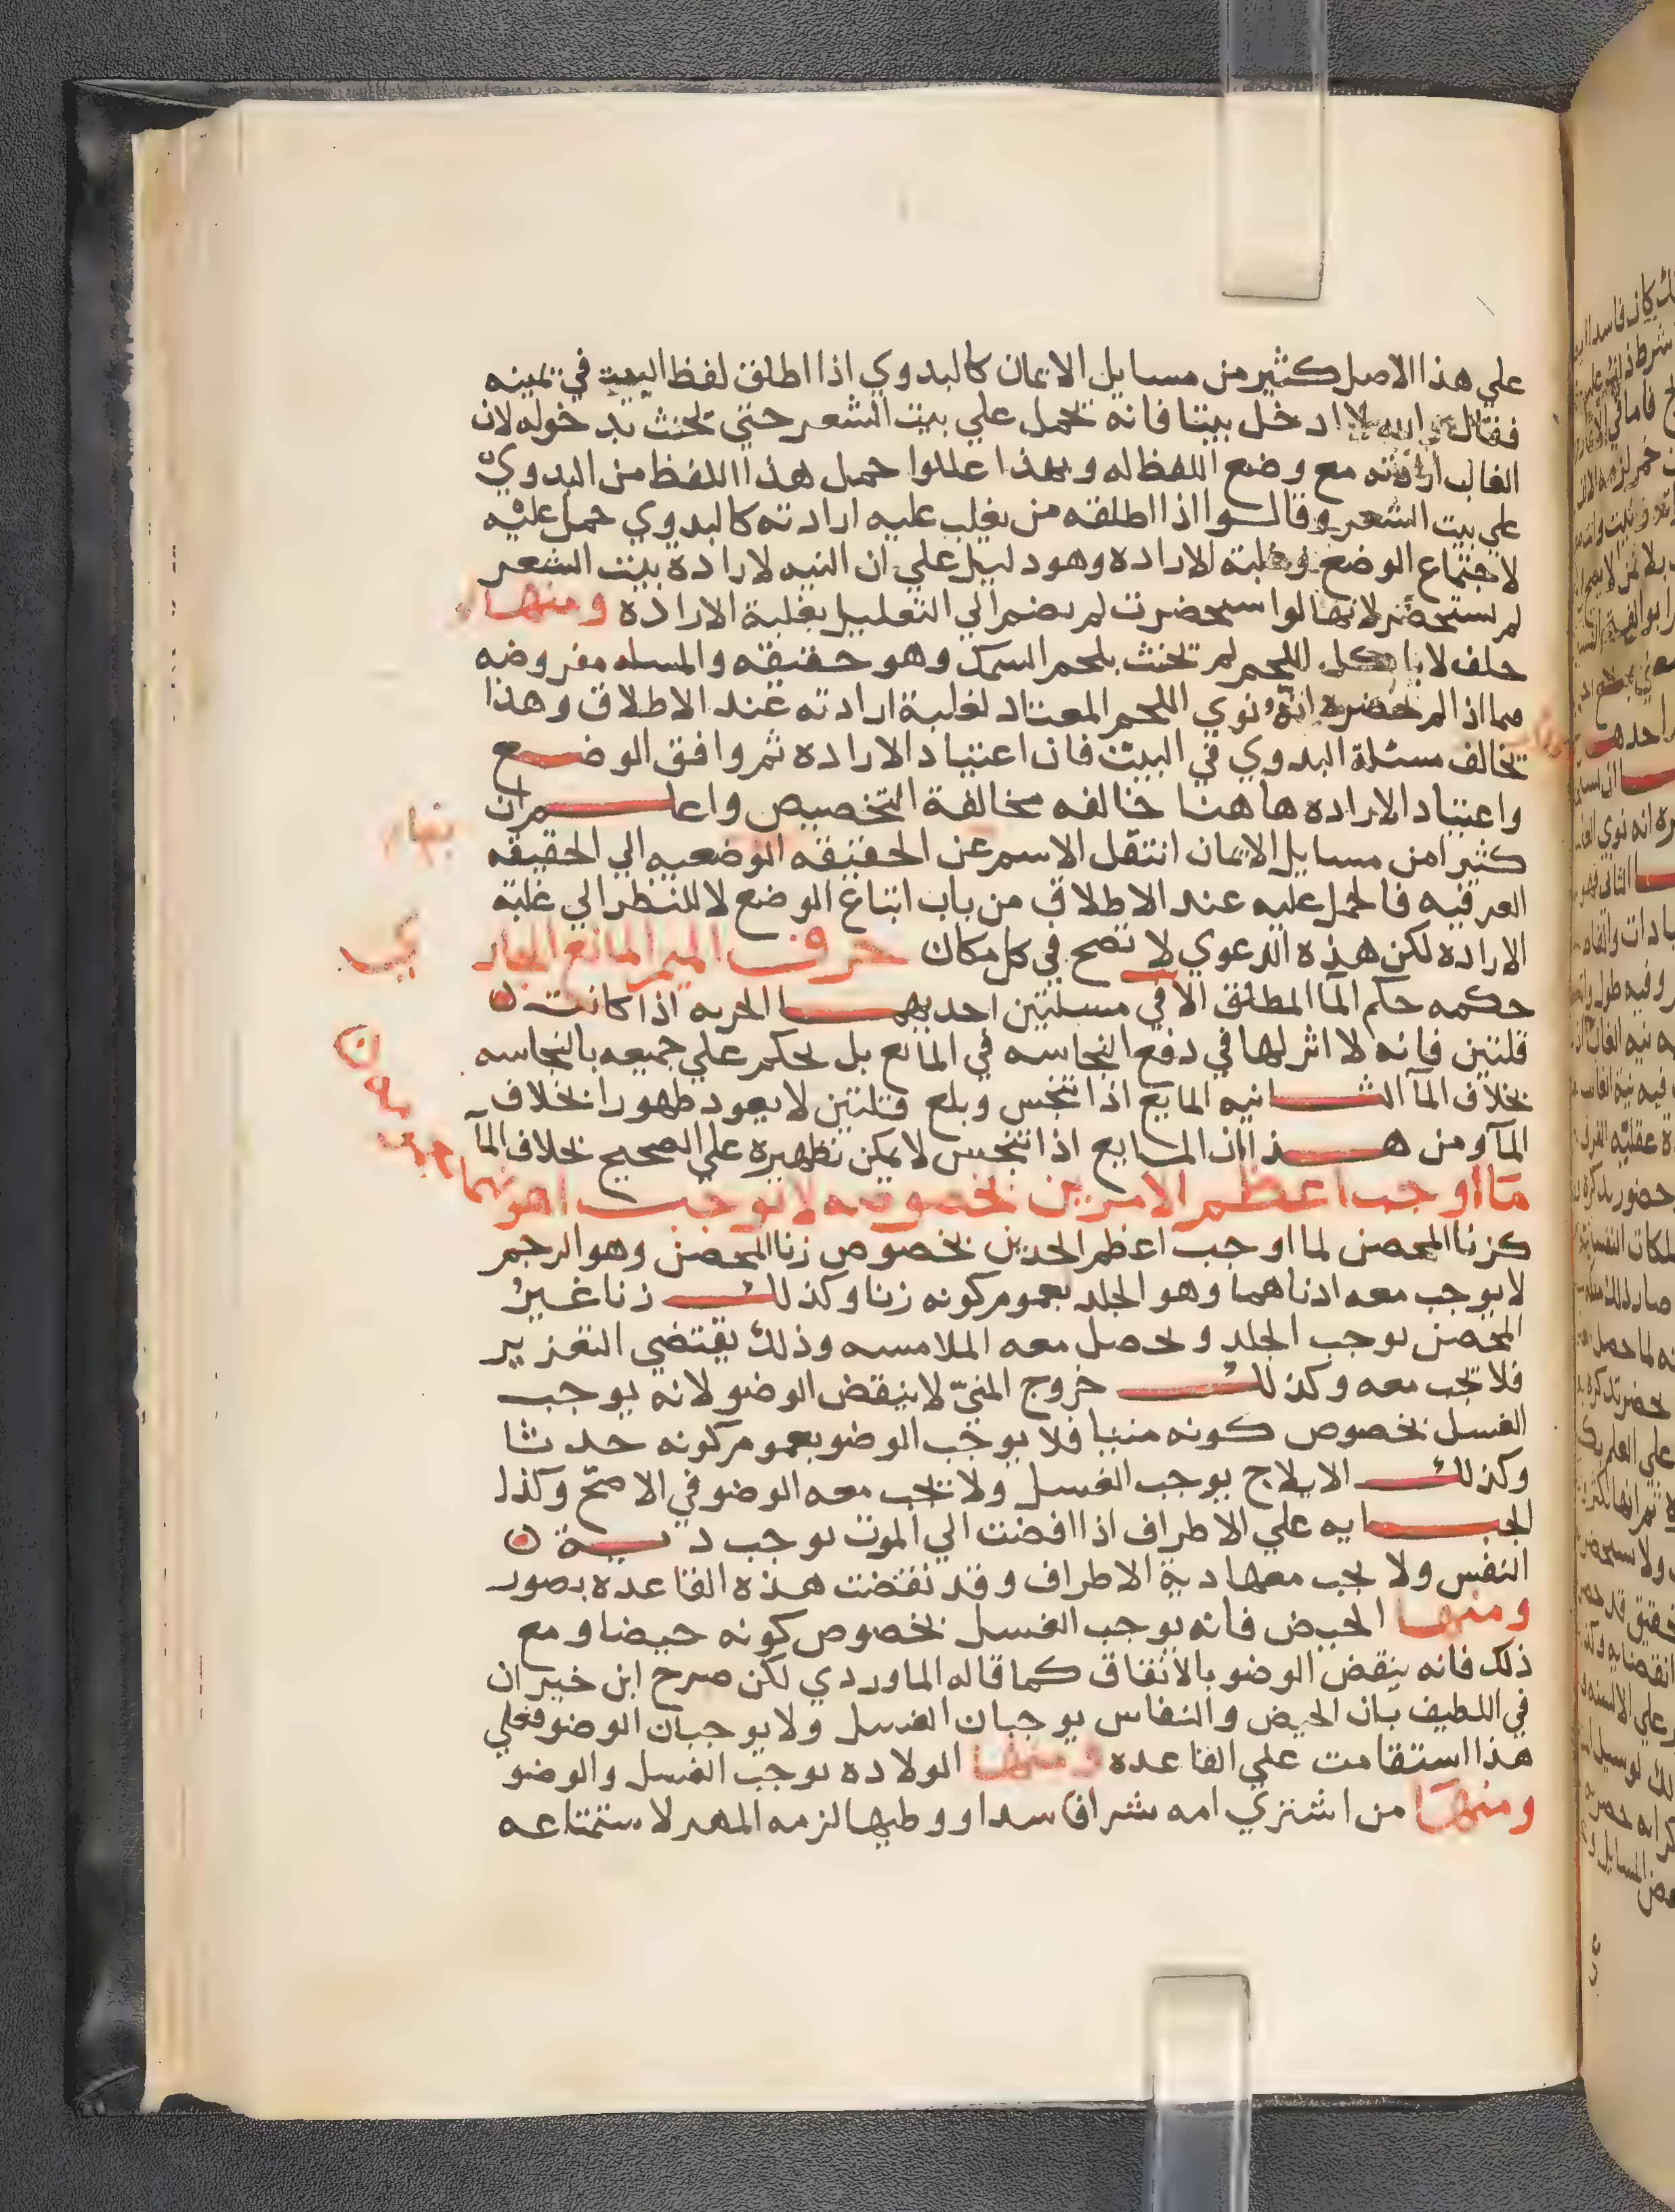 علي هذا الاصل كثير من مسايل الايمان كالبدوي اذا اطلق لفظ البيت في يمينه
فقال والله لا ادخل بيتا فانه يحمل علي بيت الشعر حتي يحنث بدخوله لان
الغالب ارادته مع وضع اللفظ له وبهذا عللوا حمل هذا اللفظ من البدويّ
علي بيت الشعر وقالوا اذا اطلقه من يغلب عليه ارادته كالبدوي حمل عليه
لاجتماع الوضع وغلبة الاراده وهو دليل علي ان النيه لارادة بيت الشعر
لم تستحضر لانها لو استحضرت لم يضم الي التعليل بغلبة الاراده ومنها
حلف لا ياكل اللحم لم يحنث بلحم السمك وهو حقيقه والمسله مفروضه
مما اذا لم تحضره نية ونوي اللحم المعتاد لغلبة ارادته عند الاطلاق وهذا
يخالف مسئلة البدوي في البيت فان اعتياد الاراده ثم وافق الوضع
واعتياد الاراده هاهنا خالفه مخالفة التخصيص واعلم ان
كثيرا من مسايل الايمان انتقل الاسم عن الحقيقه الوضعيه الي الحقيقه
العرفيه فالحمل عليه عند الاطلاق من باب اتباع الوضع لا للنظر الي غلبة
الاراده لكن هذه الدعوي لا تصح في كل مكان حرف الميم المانع الجار
حكمه حكم المآ المطلق الا في مسلتين احديهما الجريه اذا كانت ن
قلتين فانه لا اثر لها في دفع النجاسه في المايع بل يحكم علي جميعه بالنجاسه
بخلاف المآ الثانيه المايع اذا تنجس وبلغ قلتين لا يعود طهورا بخلاف
المآ ومن هذا ان المايع اذا تنجس لا يمكن تطهيره علي الصحيح بخلاف المآ
ما اوجب اعظم الامرين بخصوصه لا يوجب اهونهما
كزنا المحصن لما اوجب اعظم الحدين بخصوص زنا المحصن وهو الرجم
لا يوجب معه ادناهما وهو الجلد بعموم كونه زنا وكذلك زنا غير
المحصن يوجب الجلد ويحصل معه الملامسه وذلك يقتضي التعزير
فلا يجب معه وكذلك خروج المنيّ لا ينقض الوضو لانه يوجب
الغسل بخصوص كونه منيا فلا يوجب الوضو بعموم كونه حدثا
وكذلك الايلاج يوجب الغسل ولا يجب معه الوضو في الاصحّ وكذا
الجنايه علي الاطراف اذا افضت الي الموت يوجب دية ن
النفس ولا يجب معها دية الاطراف وقد نقضت هذه القاعده بصور
ومنها الحيض فانه يوجب الغسل بخصوص كونه حيضا ومع
ذلك فانه ينقض الوضو بالاتفاق كما قاله الماوردي لكن صرح ابن خيران
في اللطيف بان الحيض والنفاس يوجبان الغسل ولا يوجبان الوضو فعلي
هذا استقامت علي القاعده ومنها الولاده يوجب الغسل والوضو
ومنها من اشتري امه شرا فاسدا ووطيها لزمه المهر لاستمتاعه